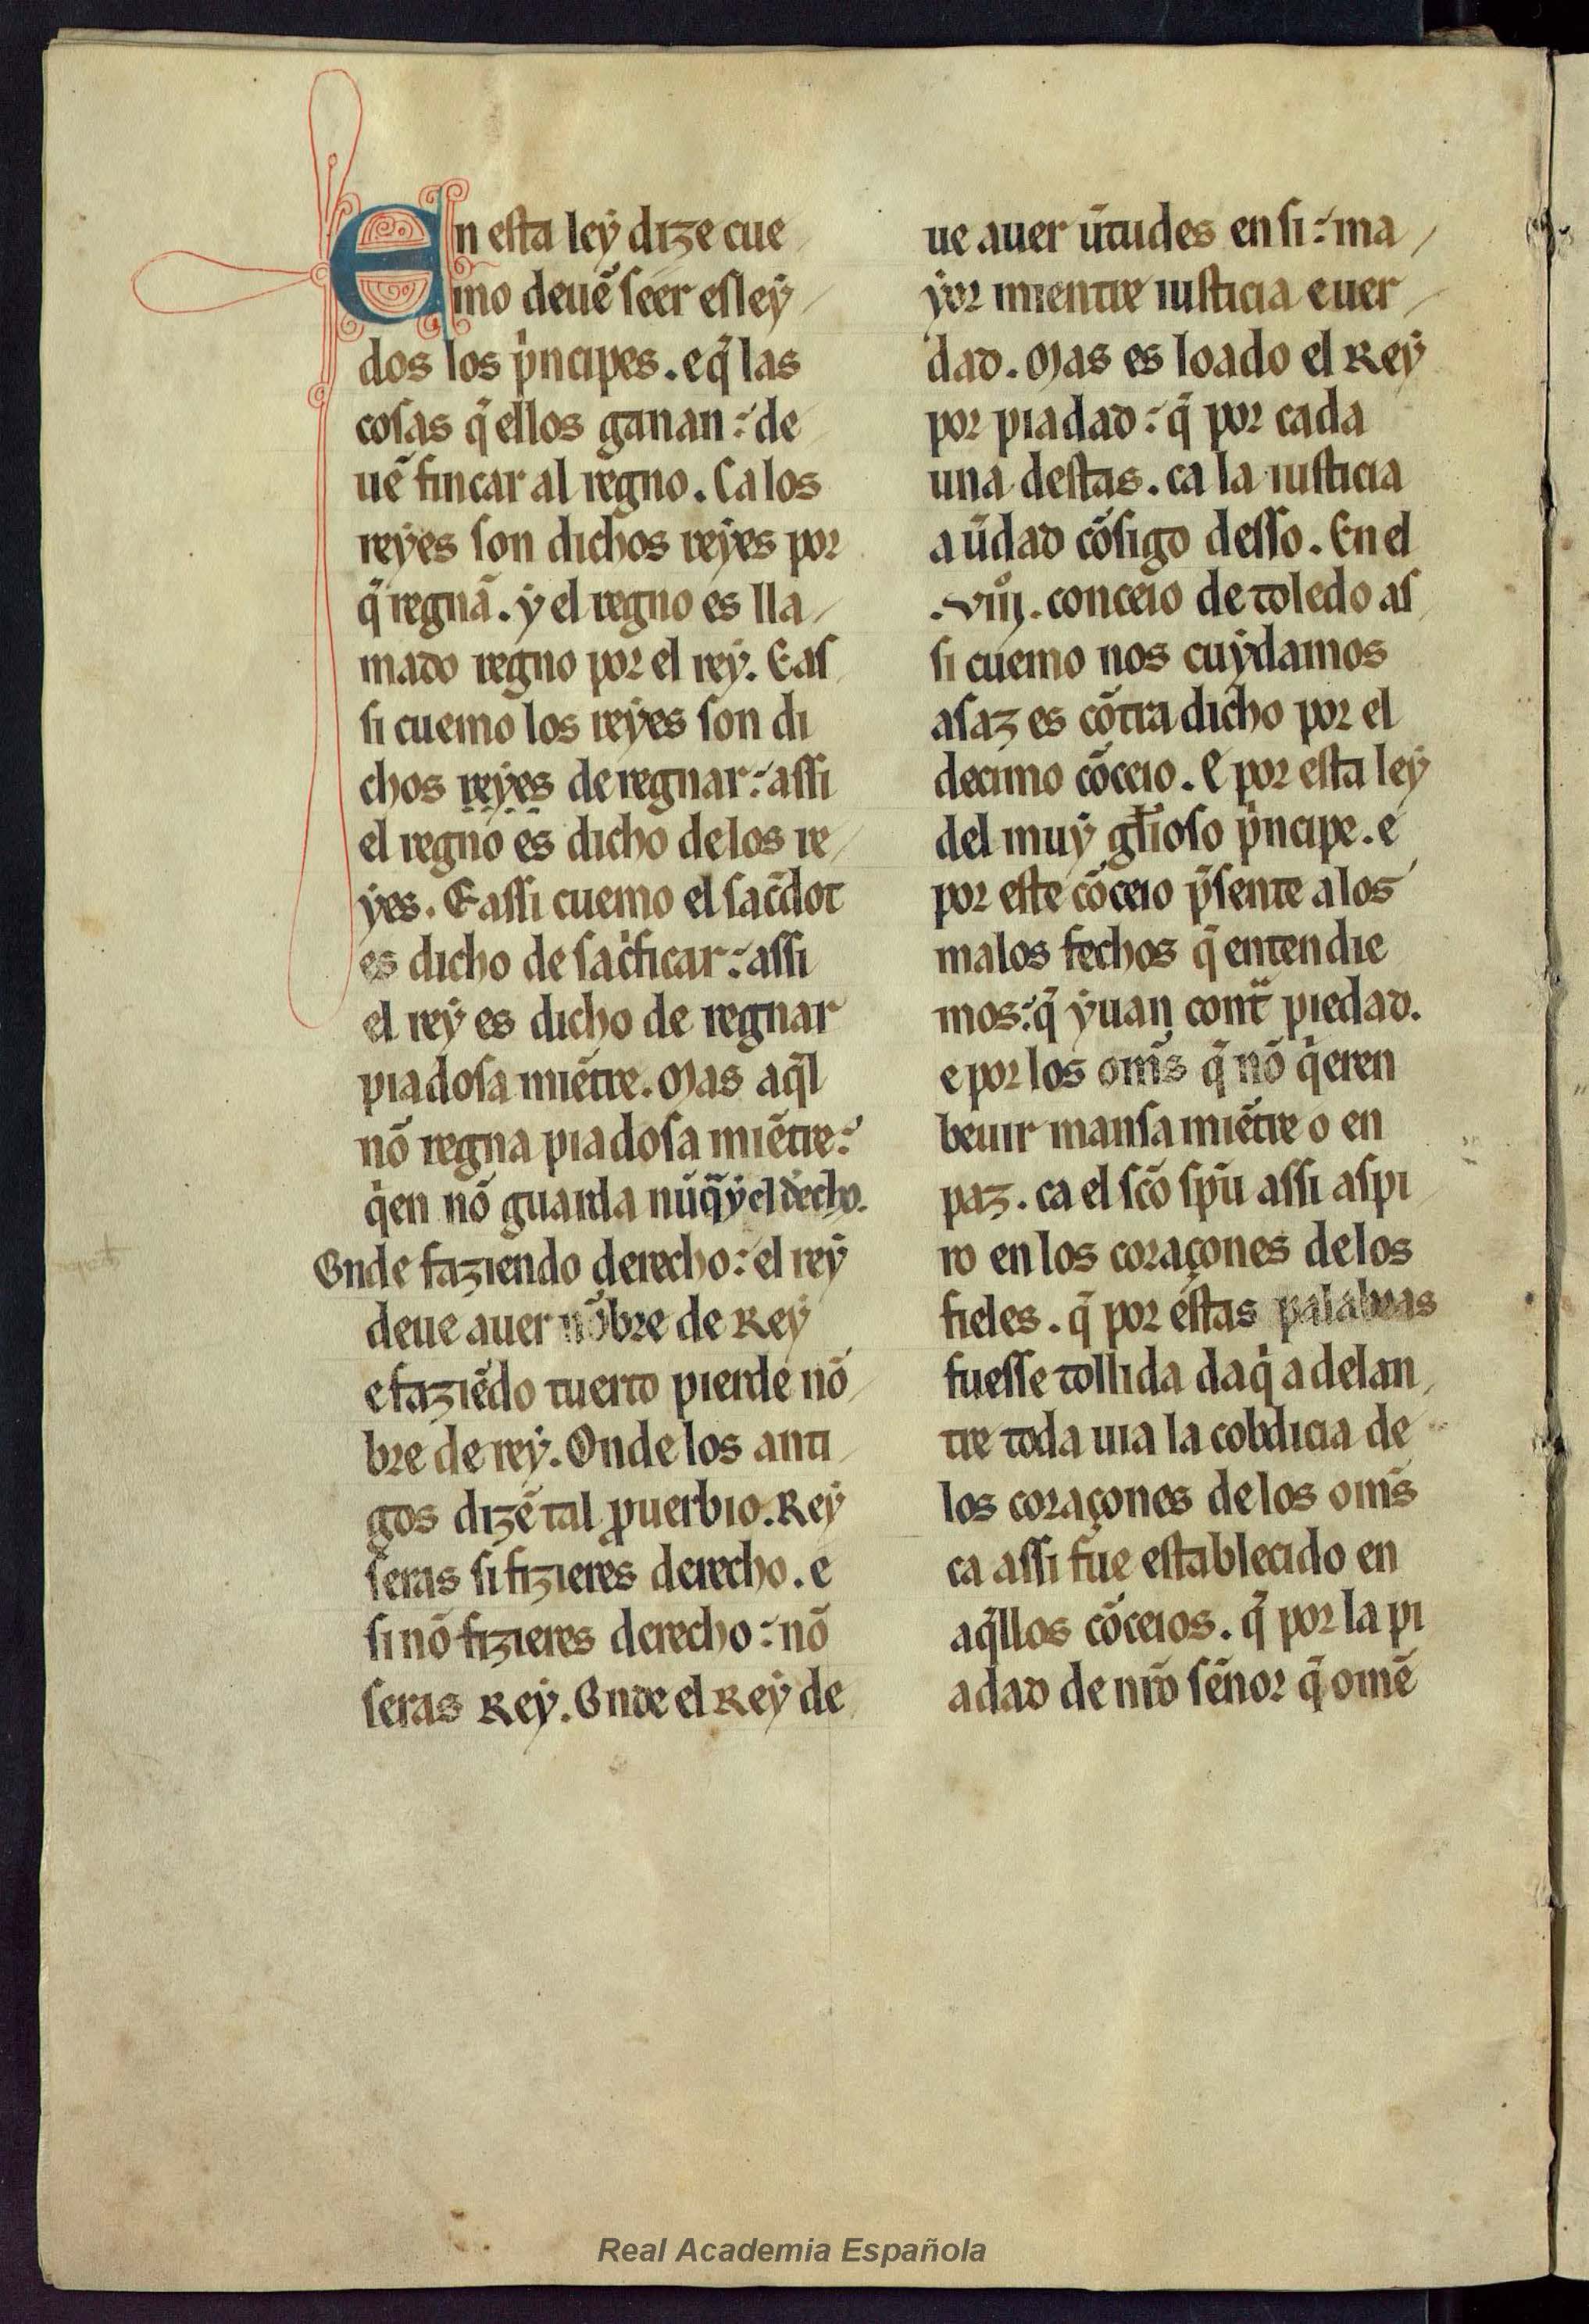 En esta ley dize cue
mo deuẽ seer esley
dos los p̃ncipes. e q̃ las
cosas q̃ ellos ganan: de
uẽ fincar al regno. Ca los
reyes son dichos reyes por
q̃ regnã. y el regno es lla
mado regno por el rey. E as
si cuemo los reyes son di
chos reyes de regnar: assi
el regno es dicho delos re
yes. E assi cuemo el sac̃dot
es dicho de sac̃ficar: assi
el rey es dicho de regnar
piadosa miẽtre. Mas aq̃l
nõ regna piadosa miẽtre:
q̃en nõ guarda nũq̃ y el d̃echo.
Onde faziendo derecho: el rey
deue auer nõbre de Rey
e faziẽdo tuerto pierde nõ
bre de rey. Onde los anti
gos dizẽ tal ꝓuerbio. Rey
seras si fizieres derecho. e
si nõ fizieres derecho: nõ
seras Rey. Onde el Rey de
ue auer ũtudes en si: ma
yor mientre iusticia e uer
dad. Mas es loado el Rey
por piadad: q̃ por cada
una destas. ca la iusticia
a ũdad cõsigo desso. En el
.viijº. conceio de toledo as
si cuemo nos cuydamos
asaz es cõtra dicho por el
decimo cõceio. E por esta ley
del muy gl̃ioso p̃ncipe. e
por este cõceio p̃sente a los
malos fechos q̃ entendie
mos: q̃ yuan cont̃ piedad.
e por los om̃s q̃ nõ q̃eren
beuir mansa miẽtre o en
paz. ca el sc̃o sp̃u assi aspi
ro en los coraçones delos
fieles. q̃ por estas palabras
fuesse tollida daq̃ adelan
tre toda uia la cobdicia de
los coraçones delos om̃s
ca assi fue establecido en
aq̃llos cõceios. q̃ por la pi
adad de nr̃o señor q̃ omẽ
Real Academia Española